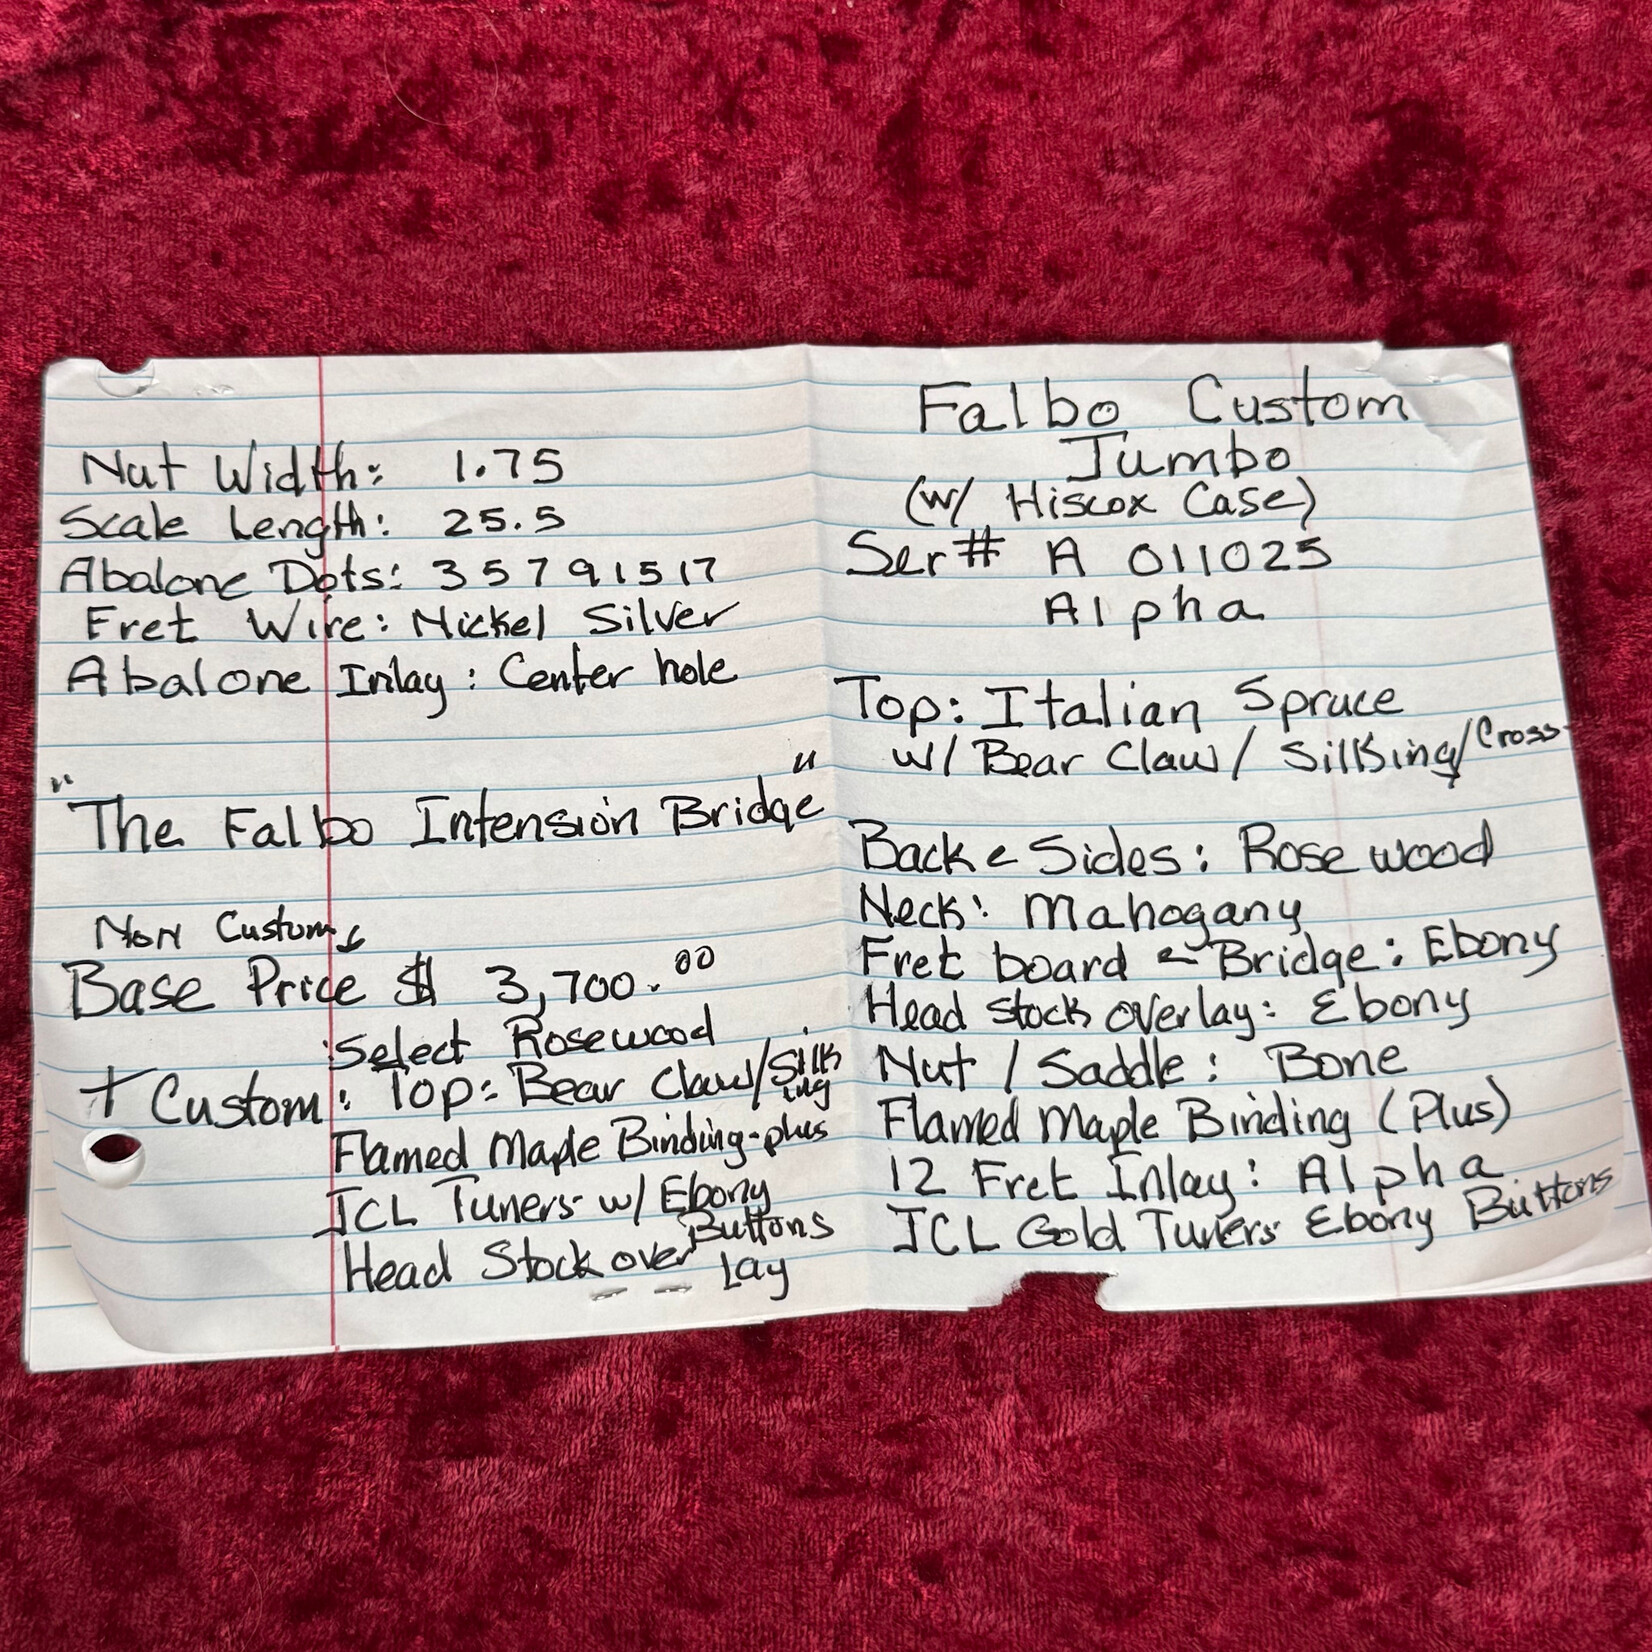 Nut Width: 1.75
Scale Length: 25.5
Abalone Dots: 3 5 7 9 15 17
Fret Wire: Nickel Silver
Abalone Inlay: Center hole
"The Falbo Intension Bridge"
Non Custom
Base Price $ 3,700.00
Select Rosewood
+ Custom: Top: Bear Claw/Silk
ing
Flamed Maple Binding-plus
JCL Tuners w/ Ebony
Buttons
Head Stock over Lay
Falbo Custom
Jumbo
(w/ Hiscox Case)
Ser# A 011025
Alpha
Top: Italian Spruce
w/ Bear Claw/ Silking/Cross-
Back & Sides: Rosewood
Neck: Mahogany
Fret board & Bridge: Ebony
Head stock overlay: Ebony
Nut / Saddle: Bone
Flamed Maple Binding (Plus)
12 Fret Inlay: Alpha
JCL Gold Tuners Ebony Buttons